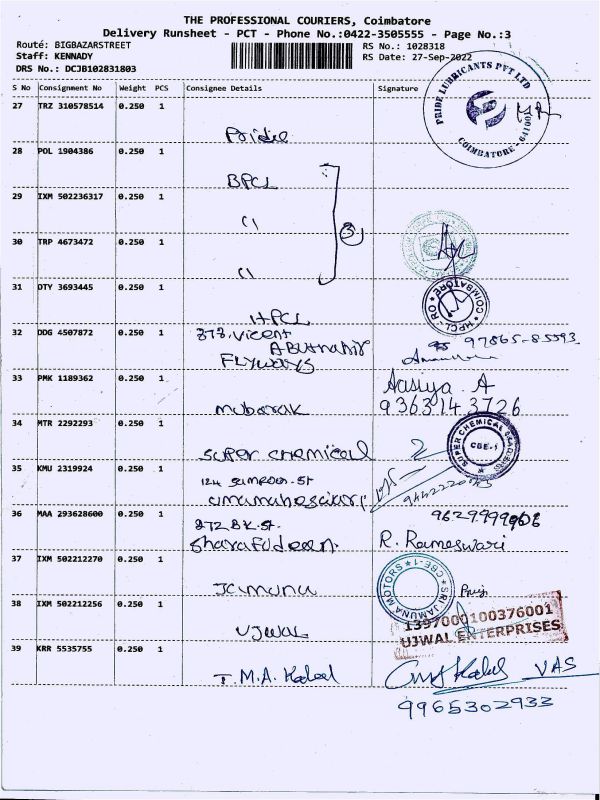 THE PROFESSIONAL COURIERS, Coimbatore
Delivery Runsheet - PCT - Phone No.:0422-3505555 - Page No.:3
Route: BIGBAZARSTREET
RS No.: 1028318
Staff: KENNADY
RS Date: 27-Sep-2022
DRS No.: DCJB102831803
S No Consignment No Weight PCS Consignee Details Signature
PRIDE LUBRICANTS PVT LTD
COIMBATORE - 641001
27 TRZ 310578514 0.250 1
Pride
28 POL 1904386 0.250 1
BPCL
29 IXM 502236317 0.250 1
3
30 TRP 4673472 0.250 1
31 DTY 3693445 0.250 1
HPCL
HPCL-RO COIMBATORE
32 DDG 4507872 0.250 1
FLYWAYS
33 PMK 1189362 0.250 1
mubarak
Aasiya . A
9363143726
34 MTR 2292293 0.250 1
super chemical
SUPER CHEMICAL
CBE-1
35 KMU 2319924 0.250 1
36 MAA 293628600 0.250 1
R. Rameswari
37 IXM 502212270 0.250 1
Jamuna
SRI JAMUNA MOTORS
CBE-1
38 IXM 502212256 0.250 1
UJWAL
1397000100376001
UJWAL ENTERPRISES
39 KRR 5535755 0.250 1
T.M.A. Kaleel
VAS
9965302933